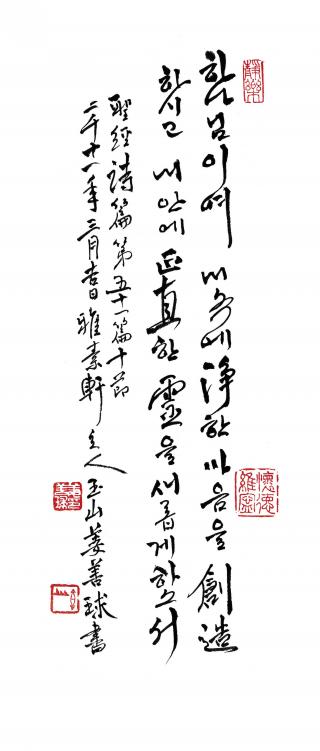 하나님이여 내 속에 淨한 마음을 創造
하시고 내 안에 正直한 靈을 새롭게 하소서
聖經 詩篇 第五十一篇 十節
二千十一年 三月 吉日 雅素軒 主人 玉山 姜善球 書